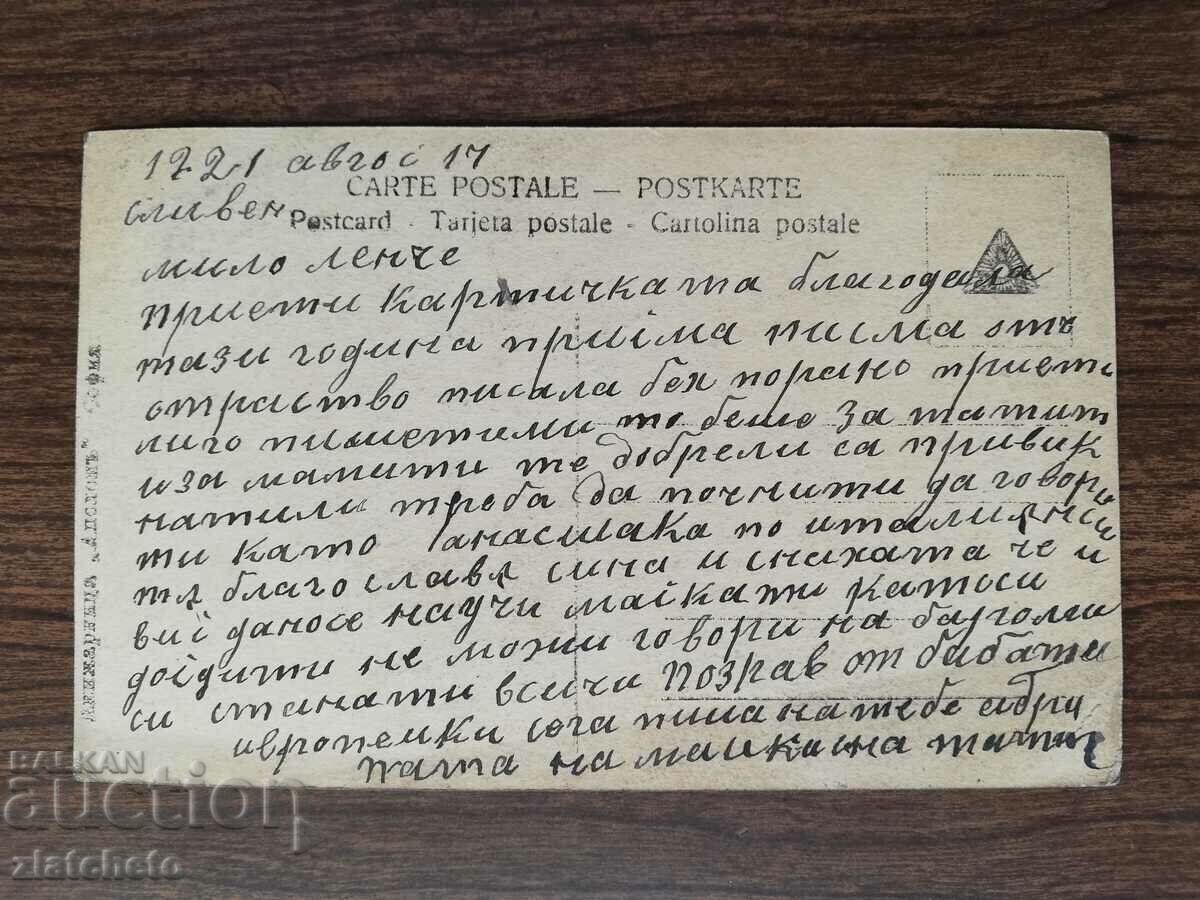 1221 авгос 17
CARTE POSTALE — POSTKARTE
сливен
Postcard - Tarjeta postale - Cartolina postale
мило ленче
приети картичката благодела
тази година приiма писма отъ
отраство писала бех порано приети
лиго пишетими то беше за татит
иза мамити те добрели са привик
натили трѣба да почнити да говори
ти като по италиянски
тя благославя сина и снахата че и
виi даносе научи маiкати катоси
доiдити не можи говори на бъдголми
си станати всичи Позрав от бабати
европеики сюга пиша на тебе
пата на маика на тати
"Аполонъ" София
BALKAN
auction
zlatcheto